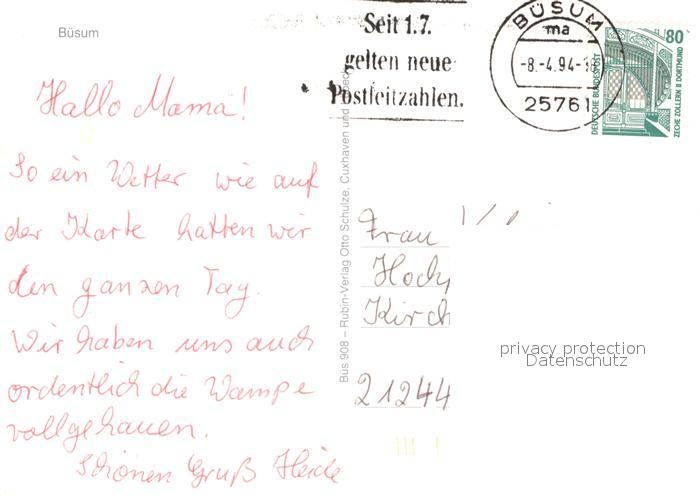 Büsum
Seit 1.7.
gelten neue
Postleitzahlen.
BÜSUM
ma
-8.-4.94-
25761
80
DEUTSCHE BUNDESPOST
ZECHE ZOLLERN II DORTMUND
Hallo Mama!
So ein Wetter wie auf
der Karte hatten wir
den ganzen Tag.
Wir haben uns auch
ordentlich die Wampe
vollgehauen.
Schönen Gruß Heide
Büs 908 – Rubin-Verlag Otto Schulze, Cuxhaven und
Frau
Kirch
21244
privacy protection
Datenschutz